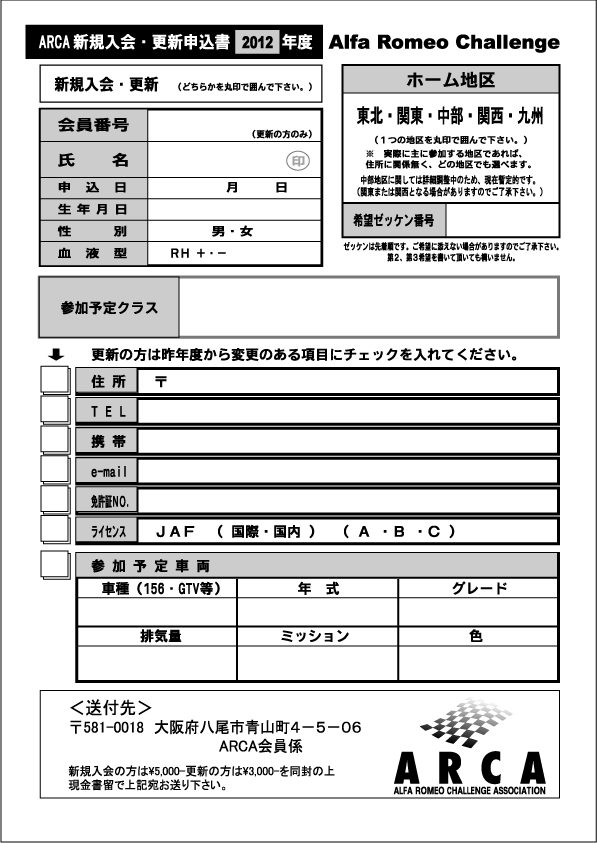 ARCA 新規入会・更新申込書 2012 年度 Alfa Romeo Challenge
新規入会・更新 （どちらかを丸印で囲んで下さい。）
会員番号 （更新の方のみ）
氏 名 印
申 込 日 月 日
生 年 月 日
性 別 男・女
血 液 型 RH ＋・－
ホーム地区
東北・関東・中部・関西・九州
（１つの地区を丸印で囲んで下さい。）
※ 実際に主に参加する地区であれば、
住所に関係無く、どの地区でも選べます。
中部地区に関しては詳細調整中のため、現在暫定的です。
（関東または関西となる場合がありますのでご了承下さい。）
希望ゼッケン番号
ゼッケンは先着順です。ご希望に添えない場合がありますのでご了承下さい。
第２、第３希望を書いて頂いても構いません。
参加予定クラス
更新の方は昨年度から変更のある項目にチェックを入れてください。
住 所 〒
ＴＥＬ
携 帯
e-mail
免許証NO.
ライセンス ＪＡＦ （ 国際・国内 ） （ Ａ ・Ｂ ・Ｃ ）
参 加 予 定 車 両
車種（156・GTV等） 年 式 グレード
排気量 ミッション 色
＜送付先＞
〒581-0018 大阪府八尾市青山町４－５－０６
ARCA会員係
新規入会の方は¥5,000-更新の方は¥3,000-を同封の上
現金書留で上記宛お送り下さい。
ARCA
ALFA ROMEO CHALLENGE ASSOCIATION